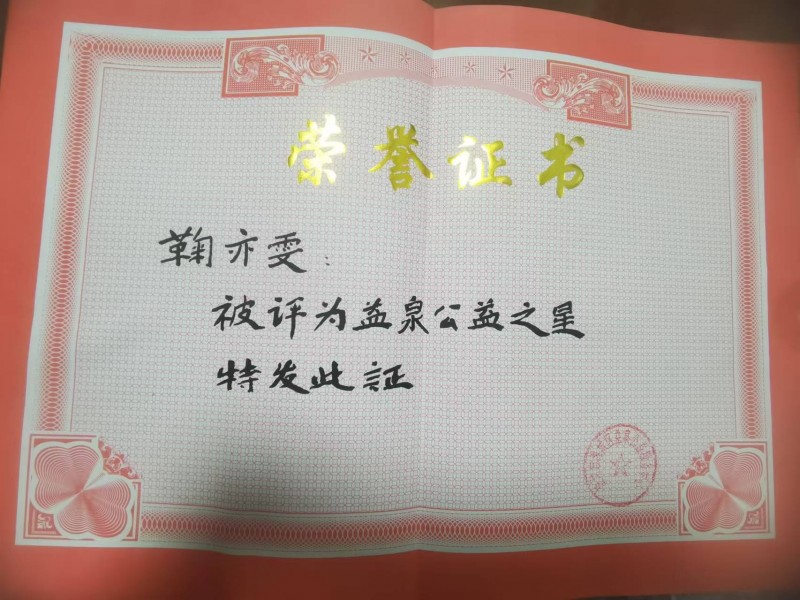 荣誉证书
鞠亦雯：
被评为益泉公益之星
特发此証